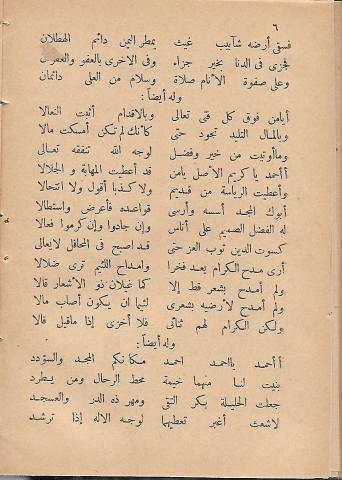 ٦
فسقى أرضه شآبيب غيث يمطر اليمن دائم الهطلان
فجزى فى الدنا بخير جزاء وفى الاخرى بالعفو والغفران
وعلى صفوة الأنام صلاة وسلام من العلى دائمان
وله أيضاً:
أيامن فوق كل فتى تعالى وبالاقدام أتبت النعالا
وبالمال التليد تجود حتى كأنك لم تكن أمسكت مالا
وماأوتيت من خير وفضل لوجه الله تنفقه تعالى
أأحمد يا كريم الأصل يامن قد أعطيت المهابة و الجلالا
وأعطيت الرياسة من قديم ولا كذبا أقول ولا انتحالا
أبوك المجد أسسه وأرسى قواعده فأعرض واستطالا
له الفضل الصميم على أناس وإن جادوا وإن كرموا فعالا
كسوت الدين ثوب العز حتى قد اصبح فى المحافل لايعالى
أرى مدح الكرام يعد فخرا وامداح اللئيم ترى ضلالا
ولم أمدح بشعر قط إلا كما غيلان ذو الأشعار قالا
ولم أمدح لأرضيه بشعرى لئيما ان يكون أصاب مالا
ولكن الكرام لهم ثنائى فلا أخزى إذا ماقيل قالا
وله أيضاً:
أأحمد يااحمد احمد مكانكم المجد والسؤدد
بنيت لنا منهما خيمة محط الرحال ومن يطرد
جعلت الحليلة بكر التقى ومهر ذه الدر والعسجد
لاشعث أغبر تعطيهما لوجه الاله إذا ترشد